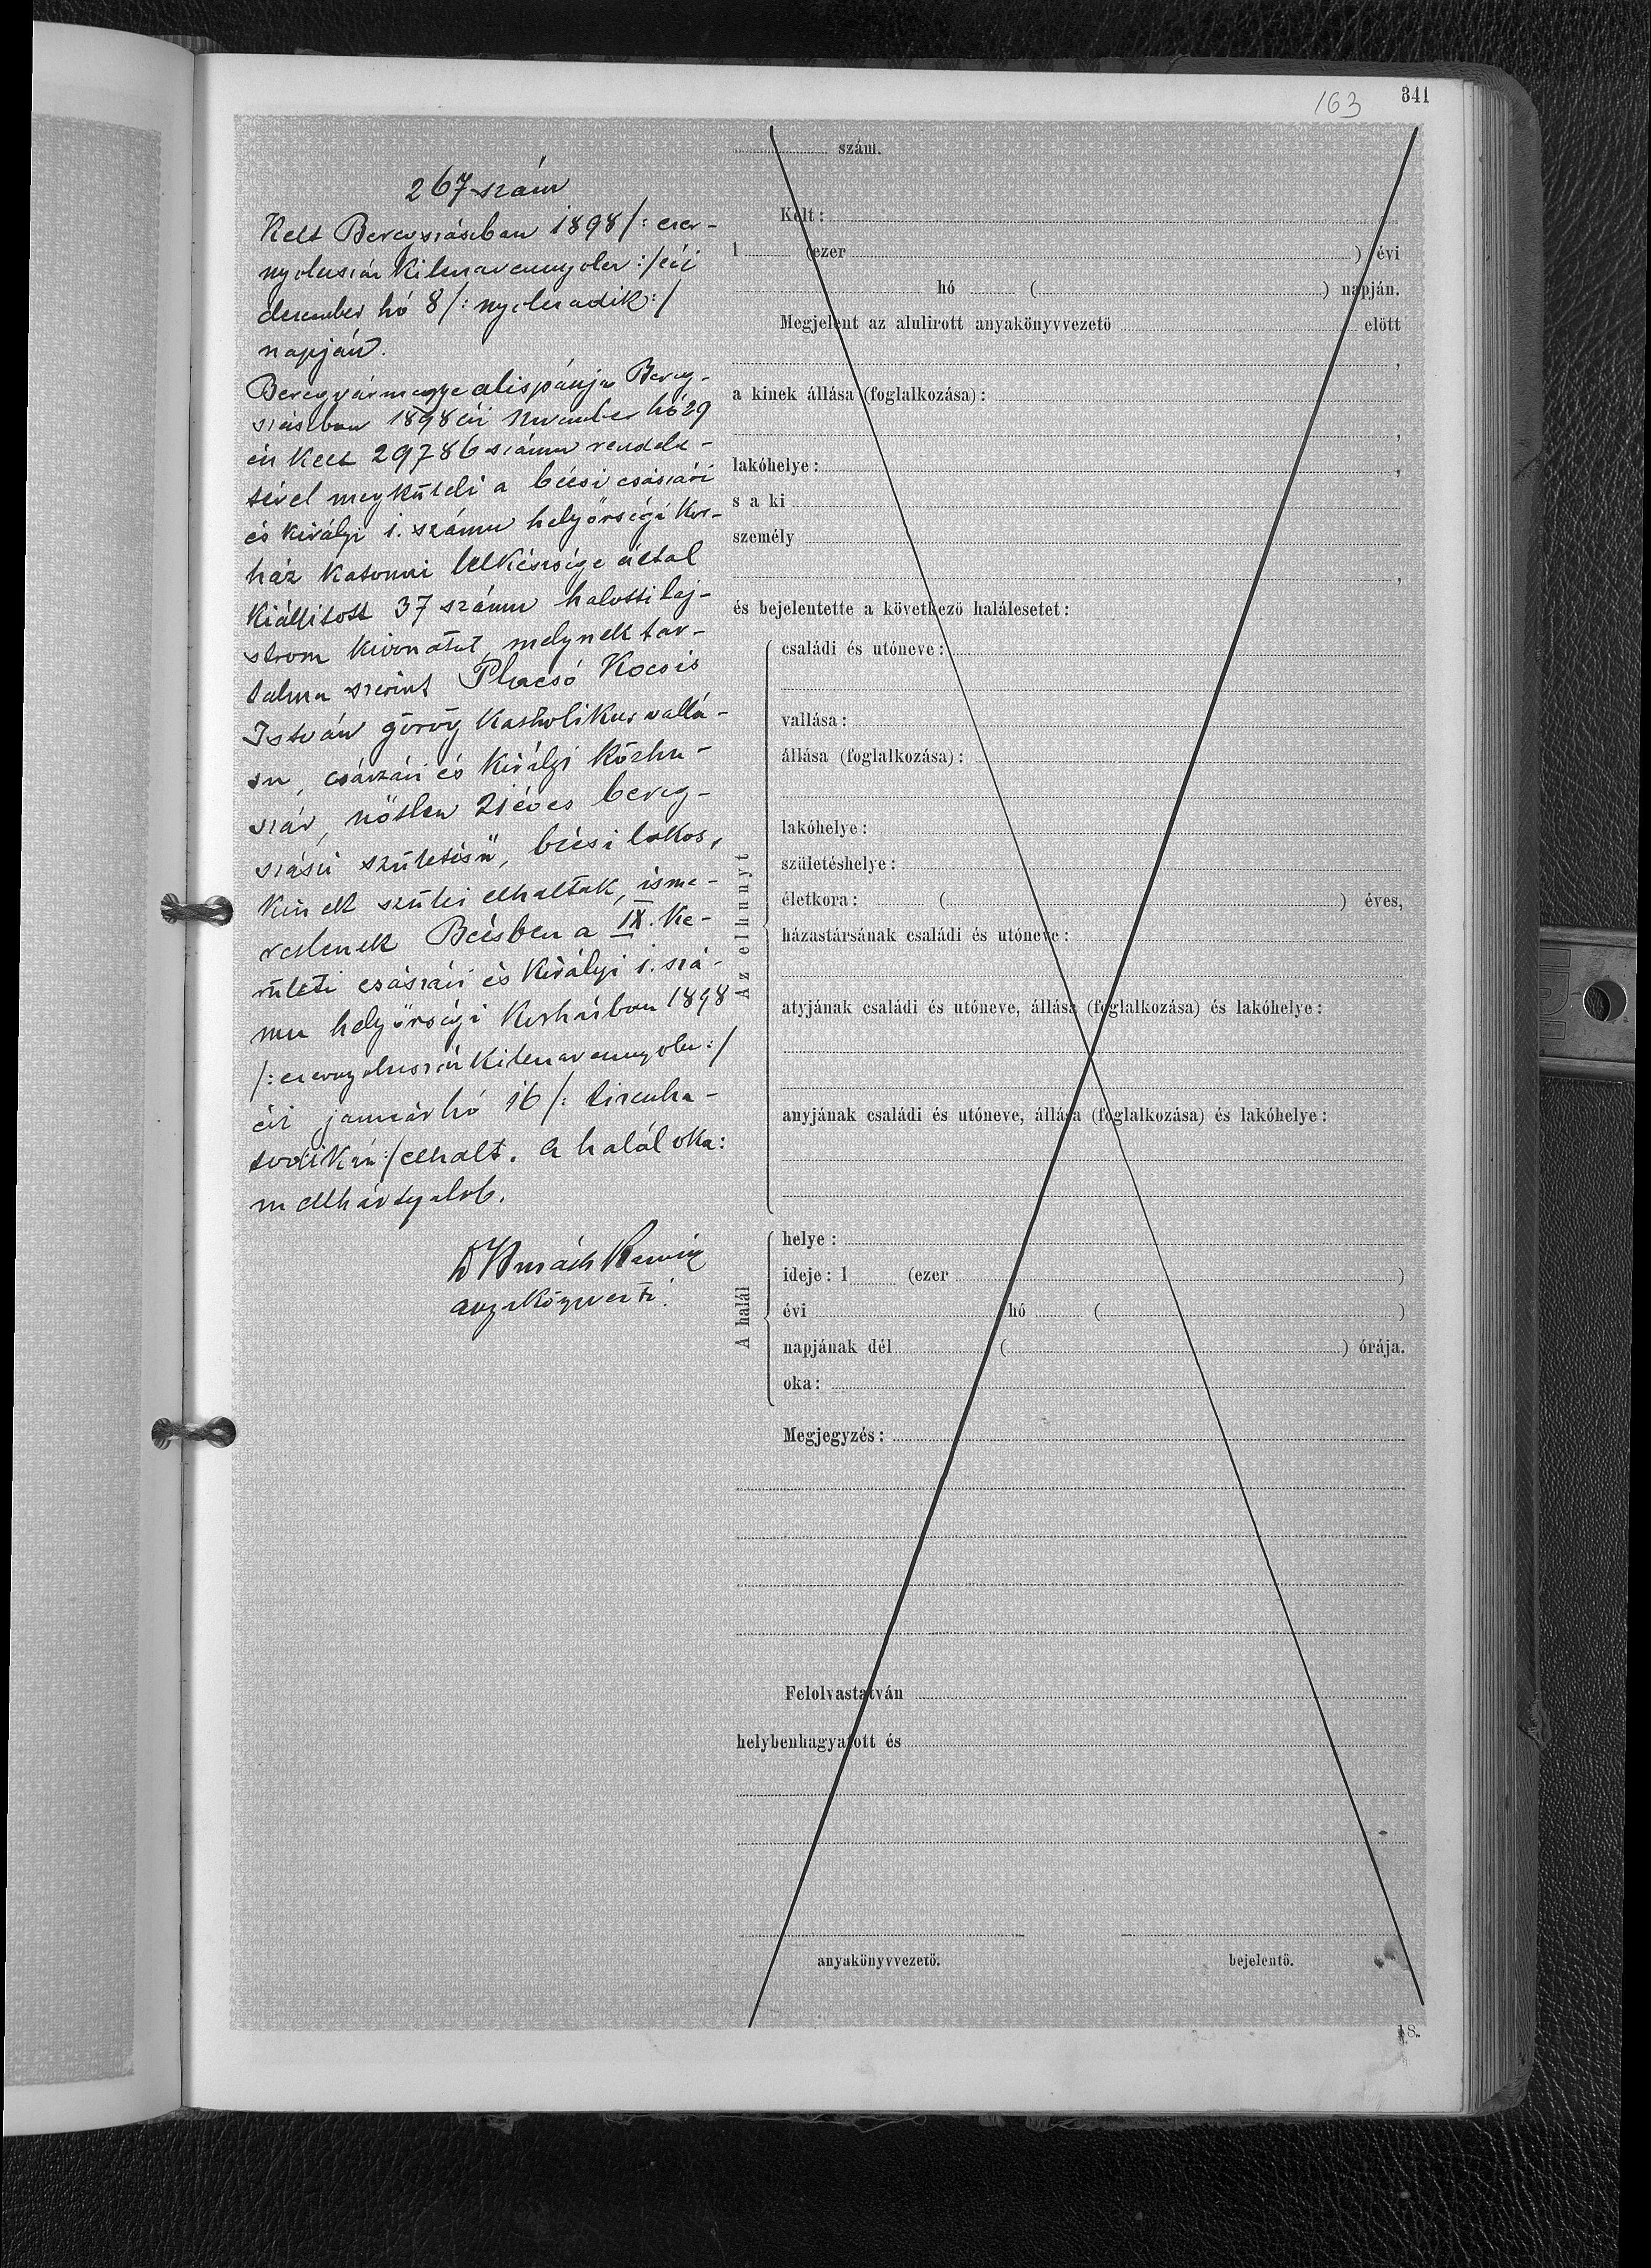 163
341
267 szám
Kelt Beregszászban 1898/: ezer-
nyolcszázkilencvennyolc :/ évi
december hó 8/: nyolcadik :/
napján.
Beregvármegye alispánja Bereg-
szászban 1898 évi November hó 29
én kelt 29786 számu rendele-
tével megküldi a bécsi császári
és királyi 1. számu helyőrségi kor-
ház katonai lelkészsége által
kiállitott 37 számu halotti laj-
strom kivonatot, melynek tar-
talma szerint Kocsis
István görög katholikus vallá-
su, császári és királyi közhu-
szár, nőtlen 21 éves bereg-
szászi születésű, bécsi lakos,
kinek szülei elhaltak, isme-
retlenek Bécsben a IX. ke-
rületi császári és királyi 1. szá-
mu helyőrségi korházban 1898
/: ezernyolcszázkilencvennyolc :/
évi január hó 16 /: tizenha-
todikán :/ elhalt. A halál oka:
mellhártyalob.
anyakönyvvezető.
szám.
Kelt:
1 (ezer ) évi
hó ( ) napján.
Megjelent az alulirott anyakönyvvezető előtt
,
a kinek állása (foglalkozása):
,
lakóhelye: ,
s a ki
személy
,
és bejelentette a következő halálesetet:
Az elhunyt
családi és utóneve:
vallása:
állása (foglalkozása):
lakóhelye:
születéshelye:
életkora: ( ) éves,
házastársának családi és utóneve:
atyjának családi és utóneve, állása (foglalkozása) és lakóhelye:
anyjának családi és utóneve, állása (foglalkozása) és lakóhelye:
A halál
helye:
ideje: 1 (ezer )
évi hó ( )
napjának dél ( ) órája.
oka:
Megjegyzés:
Felolvastatván
helybenhagyatott és
anyakönyvvezető. bejelentő.
18.